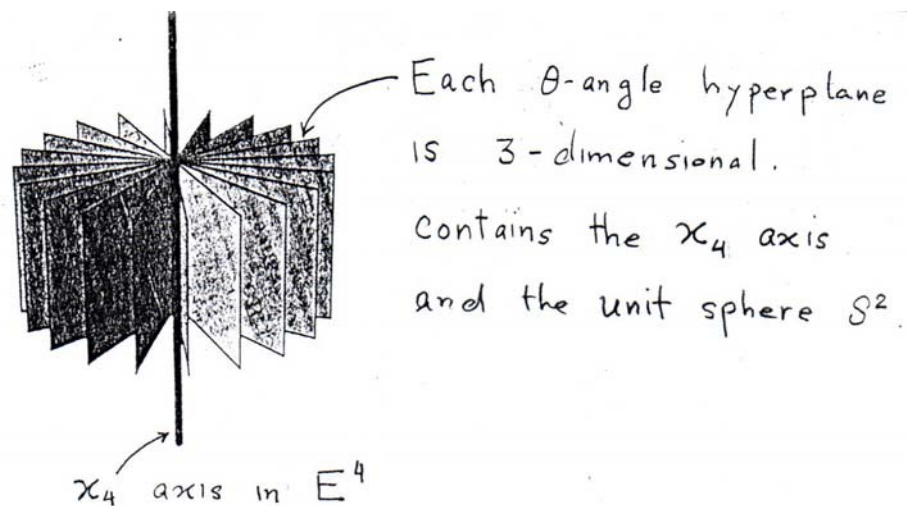 Each θ-angle hyperplane
is 3-dimensional.
contains the x₄ axis
and the unit sphere S²
x₄ axis in E⁴